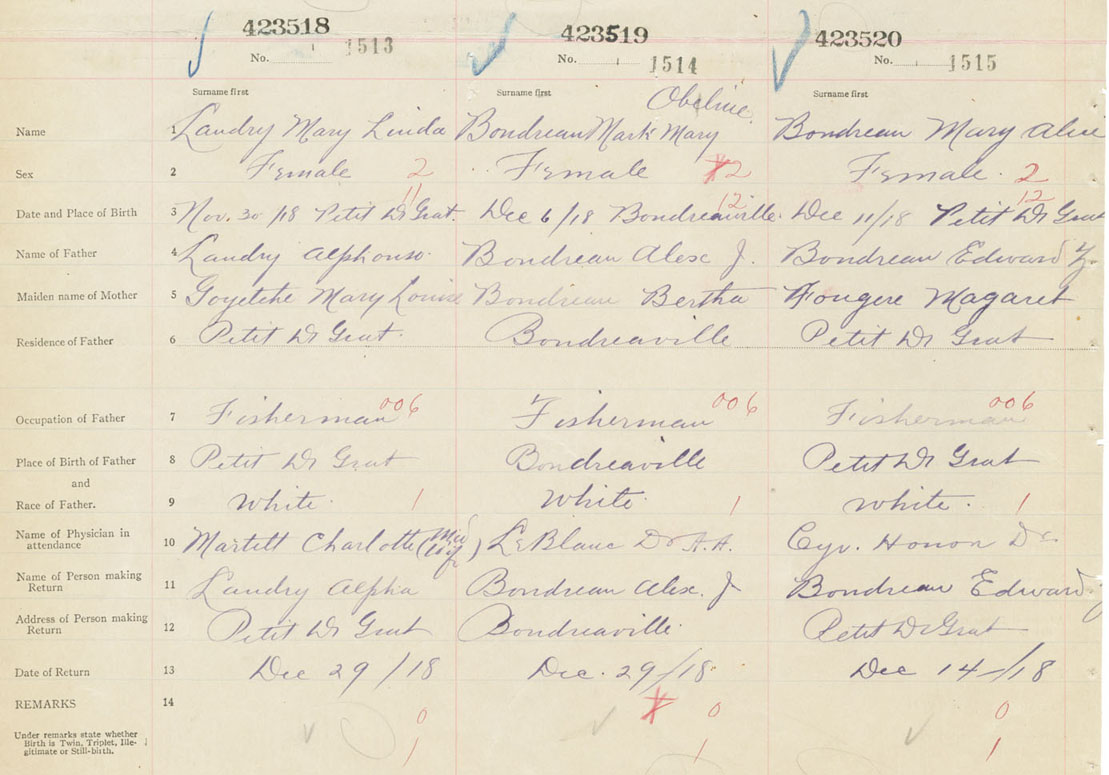 423518 423519 423520
No. 1513 No. 1514 No. 1515
Surname first Surname first Surname first
Obeline
Name 1 Landry Mary Linda Bondreau Mark Mary Bondreau Mary Alice
Sex 2 Female 2 Female 2 Female. 2
11 12 12
Date and Place of Birth 3 Nov. 30/18 Petit Dr Grat. Dec 6/18 Bondreauville. Dec 11/18 Petit Dr Grat
Name of Father 4 Landry Alphonso. Bondreau Alex J. Bondreau Edward Y.
Maiden name of Mother 5 Goyetche Mary Louise Bondreau Bertha Fougere Magaret
Residence of Father 6 Petit Dr Grat. Bondreaville Petit Dr Grat
Occupation of Father 7 Fisherman 006 Fisherman 006 Fisherman 006
Place of Birth of Father 8 Petit Dr Grat Bondreaville Petit Dr Grat
and
Race of Father. 9 White. 1 White. 1 White. 1
Name of Physician in attendance 10 Martett Charlotte (Mid Wife) LeBlanc Dr A.A. Cyr. Honor Dr.
Name of Person making Return 11 Landry Alpha Bondreau Alex. J Bondreau Edward
Address of Person making Return 12 Petit Dr Grat Bondreaville. Petit Dr Grat
Date of Return 13 Dec 29/18 Dec. 29/18. Dec 14/18
REMARKS 14 0 0 0
Under remarks state whether
Birth is Twin, Triplet, Ille-
gitimate or Still-birth.
1 1 1